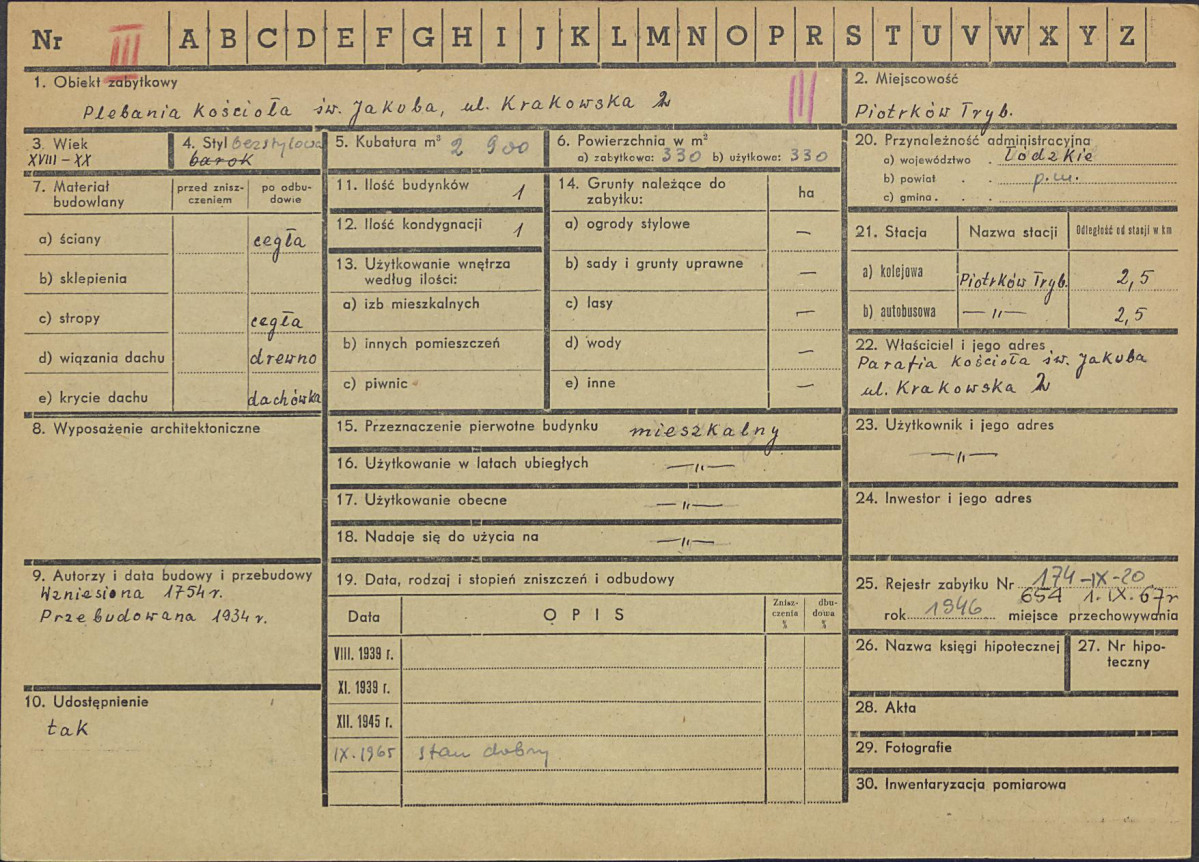 Nr III A B C D E F G H I J K L M N O P R S T U V W X Y Z
1. Obiekt zabytkowy
Plebania Kościoła św. Jakuba, ul. Krakowska
III
2. Miejscowość
Piotrków Tryb.
3. Wiek
XVIII – XX
4. Styl bezstylowa
barok
5. Kubatura m³ 2 900
6. Powierzchnia w m²
a) zabytkowa: 330 b) użytkowa: 330
20. Przynależność administracyjna
a) województwo . Łódzkie
b) powiat . . p.m.
c) gmina . . .
7. Materiał budowlany
przed zniszczeniem
po odbudowie
a) ściany cegła
b) sklepienia
c) stropy cegła
d) wiązania dachu drewno
e) krycie dachu dachówka
8. Wyposażenie architektoniczne
9. Autorzy i data budowy i przebudowy
Wzniesiona 1754 r.
Przebudowana 1934 r.
10. Udostępnienie
tak
11. Ilość budynków 1
12. Ilość kondygnacji 1
13. Użytkowanie wnętrza
według ilości:
a) izb mieszkalnych
b) innych pomieszczeń
c) piwnic
14. Grunty należące do
zabytku:
ha
a) ogrody stylowe —
b) sady i grunty uprawne —
c) lasy —
d) wody —
e) inne —
15. Przeznaczenie pierwotne budynku mieszkalny
16. Użytkowanie w latach ubiegłych —"—
17. Użytkowanie obecne —"—
18. Nadaje się do użycia na —"—
19. Data, rodzaj i stopień zniszczeń i odbudowy
Data
O P I S
Znisz-
czenia
%
dbu-
dowa
%
VIII. 1939 r.
XI. 1939 r.
XII. 1945 r.
IX. 1965 stan dobry
21. Stacja
Nazwa stacji
Odległość od stacji w km
a) kolejowa Piotrków Tryb. 2,5
b) autobusowa —"— 2,5
22. Właściciel i jego adres
Parafia Kościoła św. Jakuba
ul. Krakowska
23. Użytkownik i jego adres
—"—
24. Inwestor i jego adres
25. Rejestr zabytku Nr 174-IX-20
654 1.IX.67r
rok 1946 miejsce przechowywania
26. Nazwa księgi hipotecznej
27. Nr hipo-
teczny
28. Akta
29. Fotografie
30. Inwentaryzacja pomiarowa